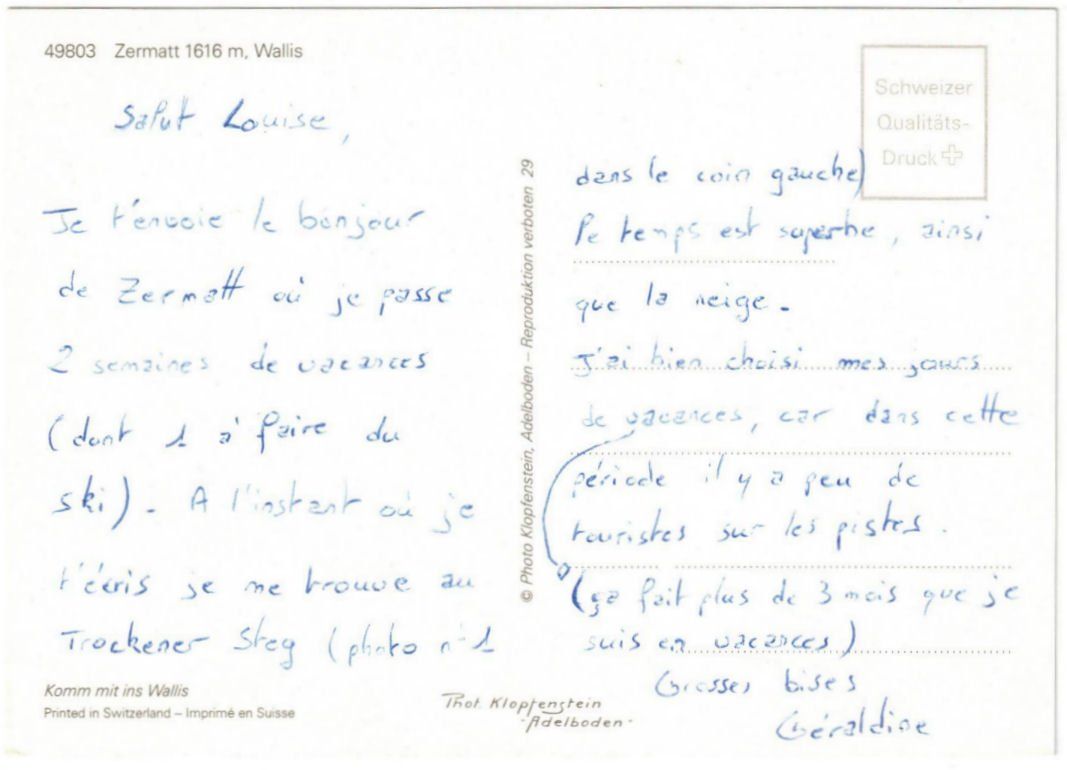 49803 Zermatt 1616 m, Wallis
Salut Louise,
Je t'envoie le bonjour
de Zermatt où je passe
2 semaines de vacances
(dont 1 à faire du
ski). A l'instant où je
t'écris je me trouve au
Trockener Steg (photo n°1
Komm mit ins Wallis
Printed in Switzerland – Imprimé en Suisse
© Photo Klopfenstein, Adelboden – Reproduktion verboten 29
Phot. Klopfenstein
-Adelboden-
Schweizer
Qualitäts-
Druck
dans le coin gauche)
le temps est superbe, ainsi
que la neige.
J'ai bien choisi mes jours
de vacances, car dans cette
période il y a peu de
touristes sur les pistes.
(ça fait plus de 3 mois que je
suis en vacances)
Grosses bises
Géraldine